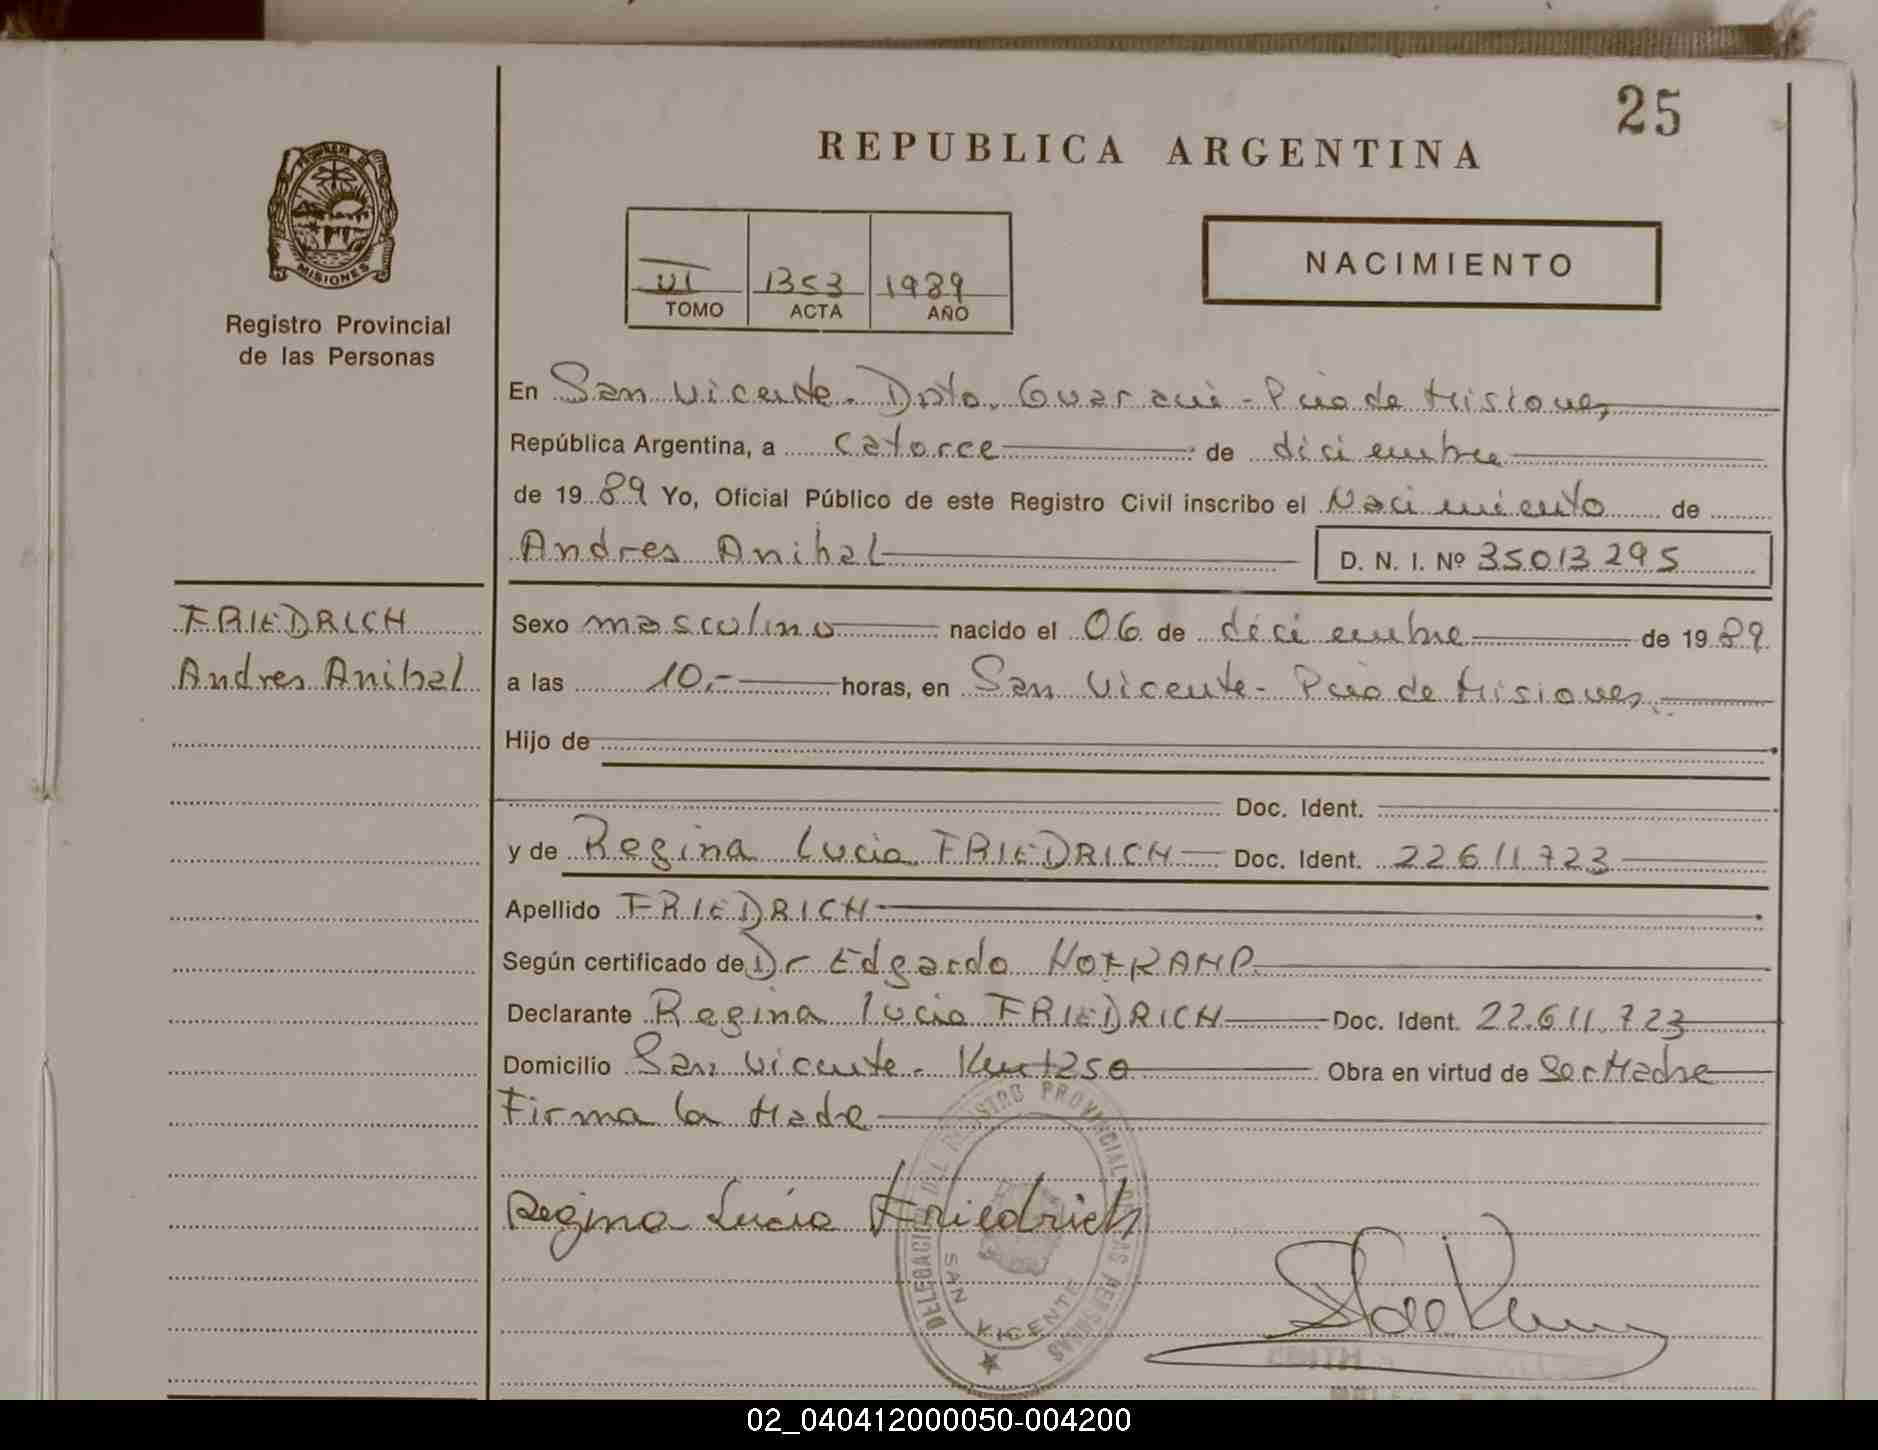 25
REPUBLICA ARGENTINA
PROVINCIA DE
MISIONES
Registro Provincial
de las Personas
VI 1353 1989
TOMO ACTA AÑO
NACIMIENTO
En San Vicente. Dpto. Guarani - Pcia de Misiones
República Argentina, a catorce de diciembre
de 1989 Yo, Oficial Público de este Registro Civil inscribo el Nacimiento de
Andres Anibal D. N. I. Nº 35013295
FRIEDRICH
Andres Anibal
Sexo masculino nacido el 06 de diciembre de 1989
a las 10.- horas, en San Vicente - Pcia de Misiones.
Hijo de
Doc. Ident.
y de Regina Lucia FRIEDRICH Doc. Ident. 22611723
Apellido FRIEDRICH
Según certificado de Dr Edgardo
Declarante Regina Lucia FRIEDRICH Doc. Ident. 22.611.723
Domicilio San Vicente. Obra en virtud de Ser Madre
Firma la Madre
Regina Lucía Friedrich
DELEGACION DEL REGISTRO PROVINCIAL DE LAS PERSONAS
SAN VICENTE
02_040412000050-004200